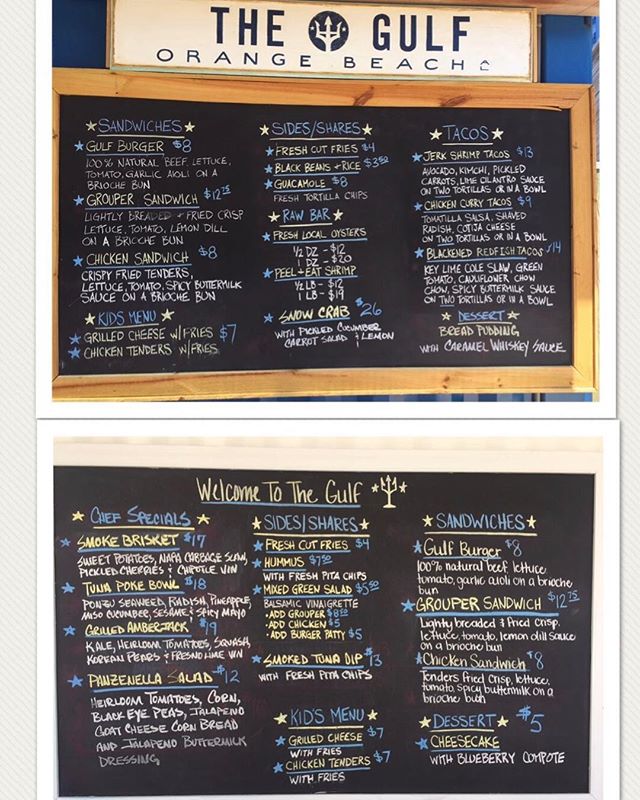 THE GULF
ORANGE BEACH
SANDWICHES
GULF BURGER $8
100% NATURAL BEEF, LETTUCE,
TOMATO, GARLIC AIOLI ON A
BRIOCHE BUN
GROUPER SANDWICH $12.75
LIGHTLY BREADED + FRIED CRISP
LETTUCE, TOMATO, LEMON DILL
ON A BRIOCHE BUN
CHICKEN SANDWICH $8
CRISPY FRIED TENDERS,
LETTUCE, TOMATO, SPICY BUTTERMILK
SAUCE ON A BRIOCHE BUN
KIDS MENU
GRILLED CHEESE W/FRIES $7
CHICKEN TENDERS W/FRIES
SIDES/SHARES
FRESH CUT FRIES $4
BLACK BEANS + RICE $3.50
GUACAMOLE $8
FRESH TORTILLA CHIPS
RAW BAR
FRESH LOCAL OYSTERS
1/2 DZ - $12
1 DZ - $20
PEEL + EAT SHRIMP
1/2 LB - $12
1 LB - $19
SNOW CRAB $26
WITH PICKLED CUCUMBER
CARROT SALAD & LEMON
TACOS
JERK SHRIMP TACOS $13
AVOCADO, KIMCHI, PICKLED
CARROTS, LIME CILANTRO SAUCE
ON TWO TORTILLAS OR IN A BOWL
CHICKEN CURRY TACOS $9
TOMATILLA SALSA, SHAVED
RADISH, COTIJA CHEESE
ON TWO TORTILLAS OR IN A BOWL
BLACKENED REDFISH TACOS $14
KEY LIME COLE SLAW, GREEN
TOMATO, CAULIFLOWER CHOW
CHOW, SPICY BUTTERMILK SAUCE
ON TWO TORTILLAS OR IN A BOWL
DESSERT
BREAD PUDDING
WITH CARAMEL WHISKEY SAUCE
Welcome To The Gulf
CHEF SPECIALS
SMOKE BRISKET $17
SWEET POTATOES, NAPA CABBAGE SLAW,
PICKLED CHERRIES & CHIPOTLE VIN
TUNA POKE BOWL $18
PONZU SEAWEED, RADISH, PINEAPPLE,
MISO CUCUMBER, SESAME & SPICY MAYO
GRILLED AMBERJACK $19
KALE, HEIRLOOM TOMATOES, SQUASH,
KOREAN PEARS & FRESNO LIME VIN
PANZENELLA SALAD $12
HEIRLOOM TOMATOES, CORN,
BLACK EYE PEAS, JALAPENO
GOAT CHEESE CORN BREAD
AND JALAPENO BUTTERMILK
DRESSING
SIDES/SHARES
FRESH CUT FRIES $4
HUMMUS $7.50
WITH FRESH PITA CHIPS
MIXED GREEN SALAD $5.50
BALSAMIC VINAIGRETTE
- ADD GROUPER $8.75
- ADD CHICKEN $5
- ADD BURGER PATTY $5
SMOKED TUNA DIP $13
WITH FRESH PITA CHIPS
KID'S MENU
GRILLED CHEESE $7
WITH FRIES
CHICKEN TENDERS $7
WITH FRIES
SANDWICHES
Gulf Burger $8
100% natural beef, lettuce
tomato, garlic aioli on a brioche
bun
GROUPER SANDWICH $12.75
Lightly breaded & fried crisp.
lettuce, tomato, lemon dill sauce
on a brioche bun
Chicken Sandwich $8
Tenders fried crisp, lettuce,
tomato, spicy buttermilk on a
brioche bun
DESSERT $5
CHEESECAKE
WITH BLUEBERRY COMPOTE